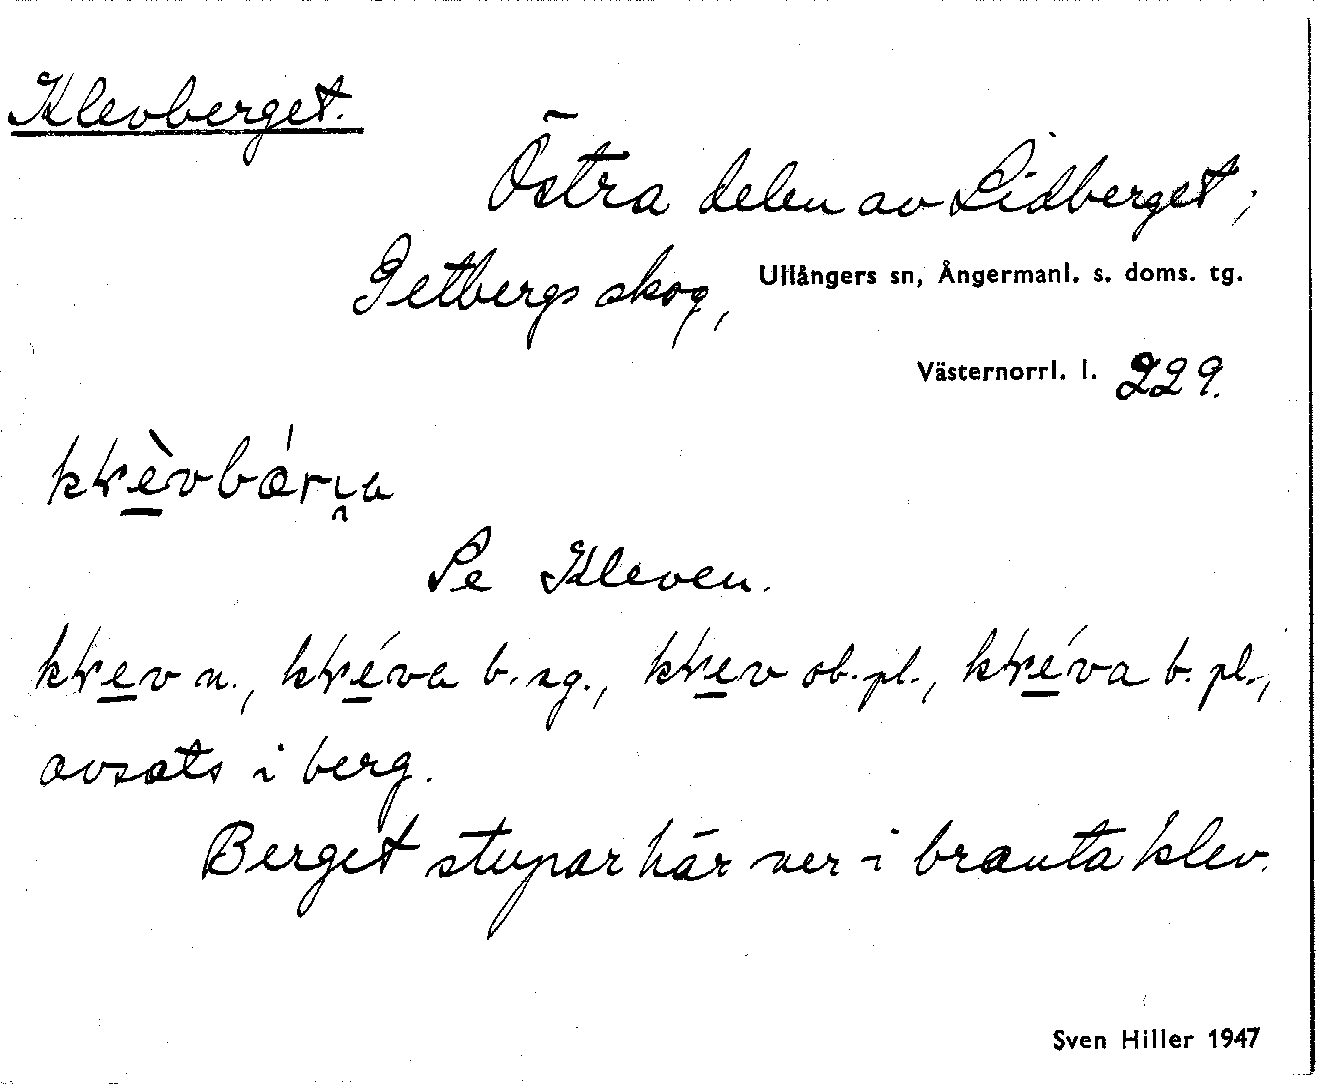 Klevberget.
Östra delen av Lidberget;
Getbergs skog, Ullångers sn, Ångermanl. s. doms. tg.
Västernorrl. l. 229.
Se Kleven.
n., b. sg., ob. pl., b. pl.,
avsats i berg.
Berget stupar här ner i branta klev.
Sven Hiller 1947